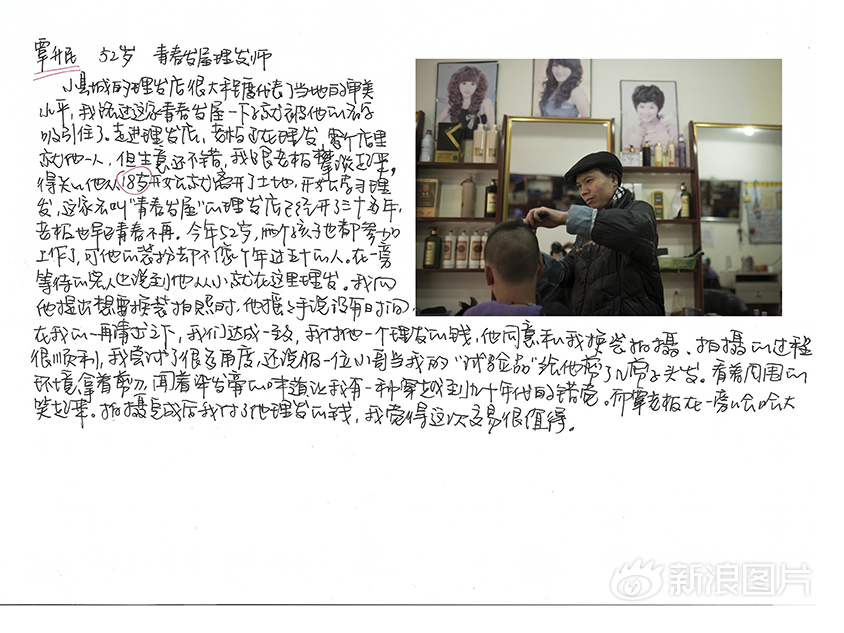 覃升民 52岁 青春发屋理发师
小县城的理发店很大程度代表了当地的审美
水平,我路过这家青春发屋一下子就被他的名字
吸引住了。走进理发店,老板正在理发,整个店里
就他一人,但生意还不错,我跟老板攀谈起来,
得知他从18岁开始就离开了土地,开始学习理
发,这家名叫“青春发屋”的理发店已经开了三十多年,
老板也早已青春不再。今年52岁,两个孩子也都参加
工作了,可他的装扮却不像个年过五十的人。在一旁
等待的客人也说到他从小就在这里理发。我向
他提出想要换装拍照时,他摇摇手说没有时间,
在我的一再请求之下,我们达成一致,我付他一个理发的钱,他同意和我换装拍摄。拍摄的过程
很顺利,我尝试了很多角度,还说服一位小哥当我的“试验品”给他剪了几剪子头发。看着周围的
环境,拿着剪刀,闻着染发膏的味道让我有一种穿越到九十年代的错觉。而覃老板在一旁哈哈大
笑起来。拍摄完成后我付了他理发的钱,我觉得这次交易很值得。
新浪图片